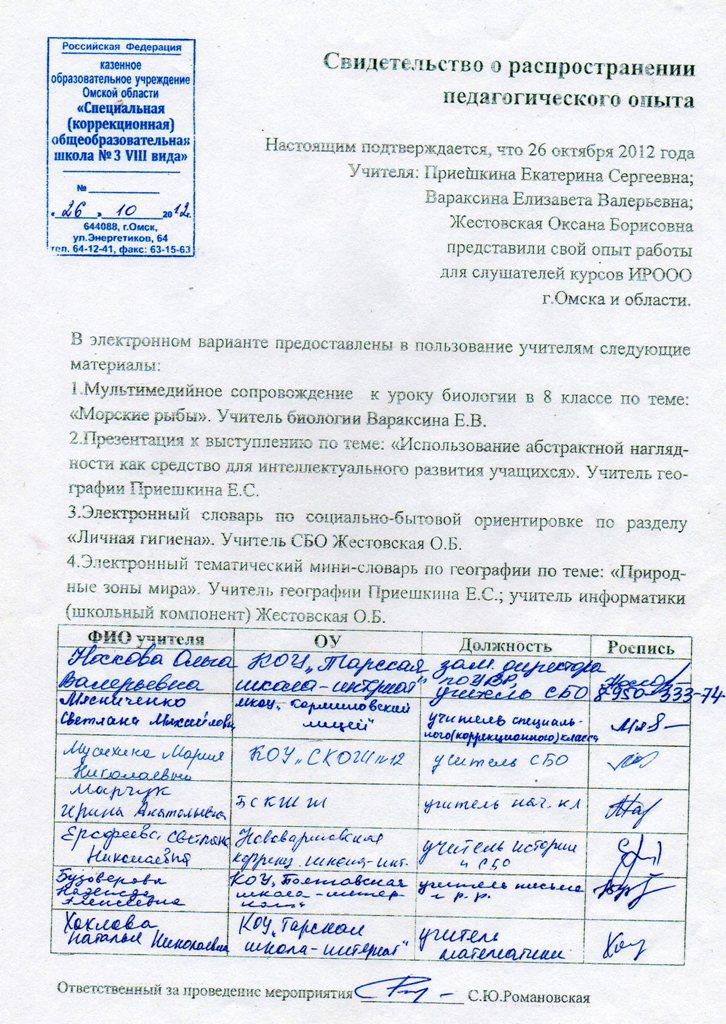 Российская Федерация
казенное
образовательное учреждение
Омской области
«Специальная
(коррекционная)
общеобразовательная
школа №3 VIII вида»
№
«26» 10 2012г.
644088, г.Омск,
ул.Энергетиков, 64
тел. 64-12-41, факс: 63-15-63
Свидетельство о распространении
педагогического опыта
Настоящим подтверждается, что 26 октября 2012 года
Учителя: Приешкина Екатерина Сергеевна;
Вараксина Елизавета Валерьевна;
Жестовская Оксана Борисовна
представили свой опыт работы
для слушателей курсов ИРООО
г.Омска и области.
В электронном варианте предоставлены в пользование учителям следующие
материалы:
1.Мультимедийное сопровождение к уроку биологии в 8 классе по теме:
«Морские рыбы». Учитель биологии Вараксина Е.В.
2.Презентация к выступлению по теме: «Использование абстрактной нагляд-
ности как средство для интеллектуального развития учащихся». Учитель гео-
графии Приешкина Е.С.
3.Электронный словарь по социально-бытовой ориентировке по разделу
«Личная гигиена». Учитель СБО Жестовская О.Б.
4.Электронный тематический мини-словарь по географии по теме: «Природ-
ные зоны мира». Учитель географии Приешкина Е.С.; учитель информатики
(школьный компонент) Жестовская О.Б.
ФИО учителя ОУ Должность Роспись
Носкова Ольга КОУ „Тарская зам. директора
Валерьевна школа-интернат" по УВР, учитель СБО 8-950-333-74-
Мясниченко МКОУ „Кормиловский учитель специаль-
Светлана Михайловна лицей" ного(коррекционного) класса
Мусихина Мария КОУ „СКОШ №12 учитель СБО
Николаевна
Марчук БСКШИ учитель нач. кл
Ирина Анатольевна
Ерофеева Светлана Нововаршавская учитель истории
Николаевна коррекц. школа-инт. и СБО
КОУ „Полтавская учитель письма
Надежда школа-интер- и р.р.
Алексеевна нат"
Хохлова КОУ „Тарская учитель
Наталья Николаевна школа-интернат" математики
Ответственный за проведение мероприятия С.Ю.Романовская